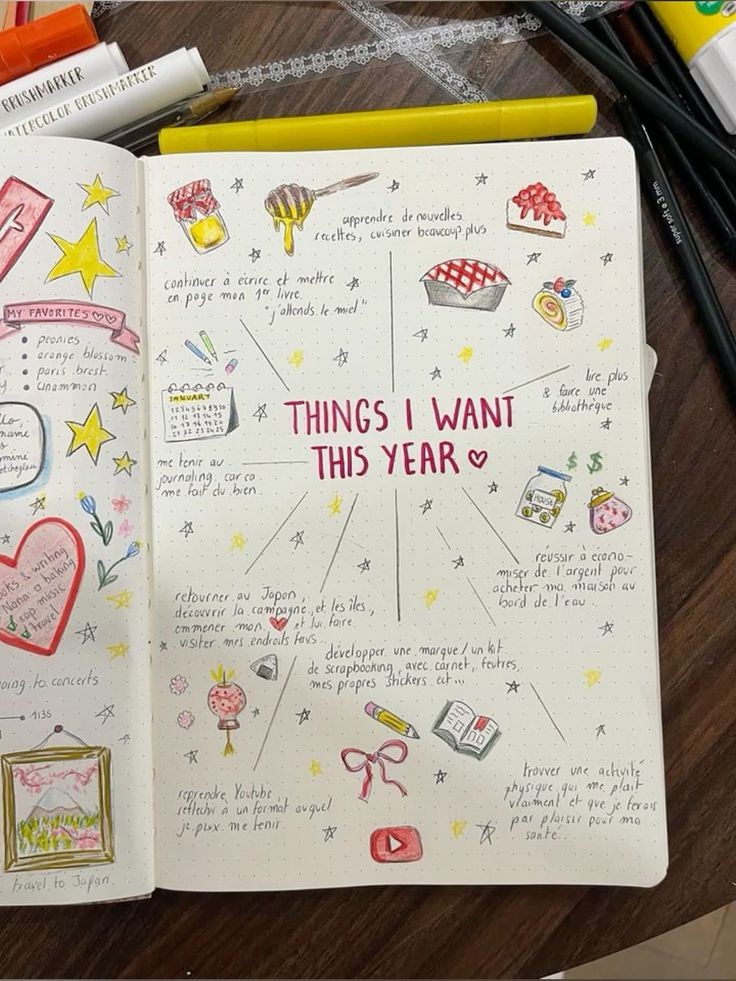 BRUSHMARKER
WATERCOLOR BRUSHMARKER
super soft ø 3 mm
MY FAVORITES ♡♡
• peonies
• orange blossom
• paris brest
• cinammon
name
books & writing
Nana & baking
rap music
travel
going to concerts
1:35
travel to Japan
apprendre de nouvelles
recettes, cuisiner beaucoup plus
continuer à écrire et mettre
en page mon 1er livre
"j'attends le miel"
lire plus
& faire une
bibliothèque
JANUARY
THINGS I WANT
THIS YEAR ♡
me tenir au
journaling car ca
me fait du bien.
HOUSE
$ $
réussir à écono-
miser de l'argent pour
acheter ma maison au
bord de l'eau.
retourner au Japon,
découvrir la campagne, et les îles,
emmener mon ❤ et lui faire
visiter mes endroits favs.
développer une marque / un kit
de scrapbooking, avec carnet, feutres,
mes propres stickers ect...
reprendre Youtube,
réfléchir à un format auquel
je peux me tenir
trouver une activité
physique qui me plait
vraiment et que je ferais
par plaisir pour ma
santé...